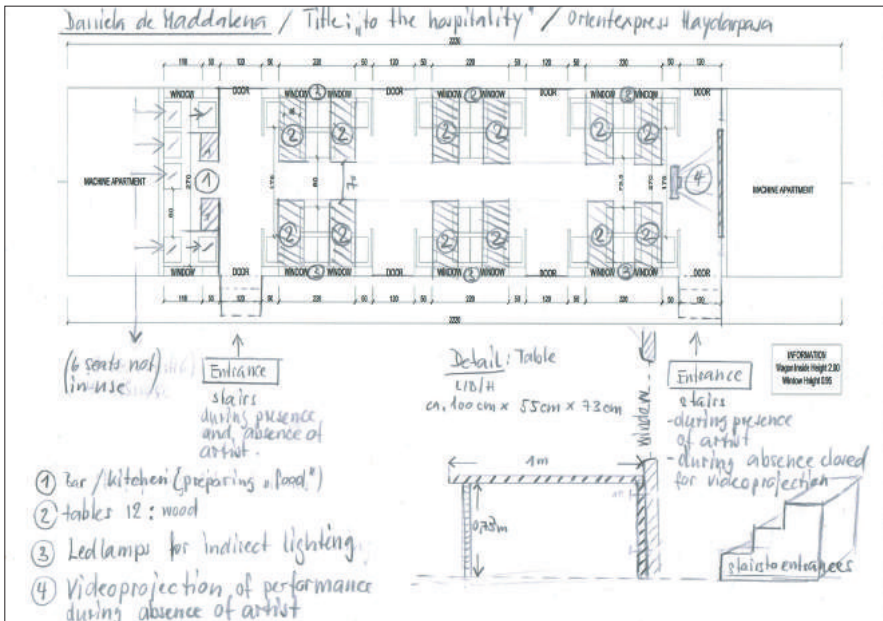 Daniela de Maddalena / Title: „to the hospitality" / Orientexpress Haydarpasa
2220
110 50 120 50 220 50 120 50 220 50 120 50 220 50 120
WINDOW DOOR WINDOW 3 WINDOW DOOR WINDOW WINDOW DOOR WINDOW 3 WINDOW DOOR
2 2 2 2 2 2
MACHINE APARTMENT 1 270 60 175 80 70 270 175 4 MACHINE APARTMENT
2 2 2 2 2 2
WINDOW DOOR WINDOW 3 WINDOW DOOR WINDOW WINDOW DOOR WINDOW 3 WINDOW DOOR
110 50 120 50 220 50 120 50 220 50 120 50 220 50 120
2220
(6 seats not)
in use
Entrance
stairs
during presence
and absence of
artist.
Detail: Table
L/B/H
ca. 100cm x 55cm x 73cm
window
Entrance
stairs
-during presence
of artist
-during absence closed
for videoprojection
INFORMATION
Wagon Inside Height 2.90
Window Height 0.95
1m
0,73m
stairs to entrances
1 Bar / kitchen (preparing „food")
2 tables 12: wood
3 Led lamps for indirect lighting
4 Videoprojection of performance
during absence of artist